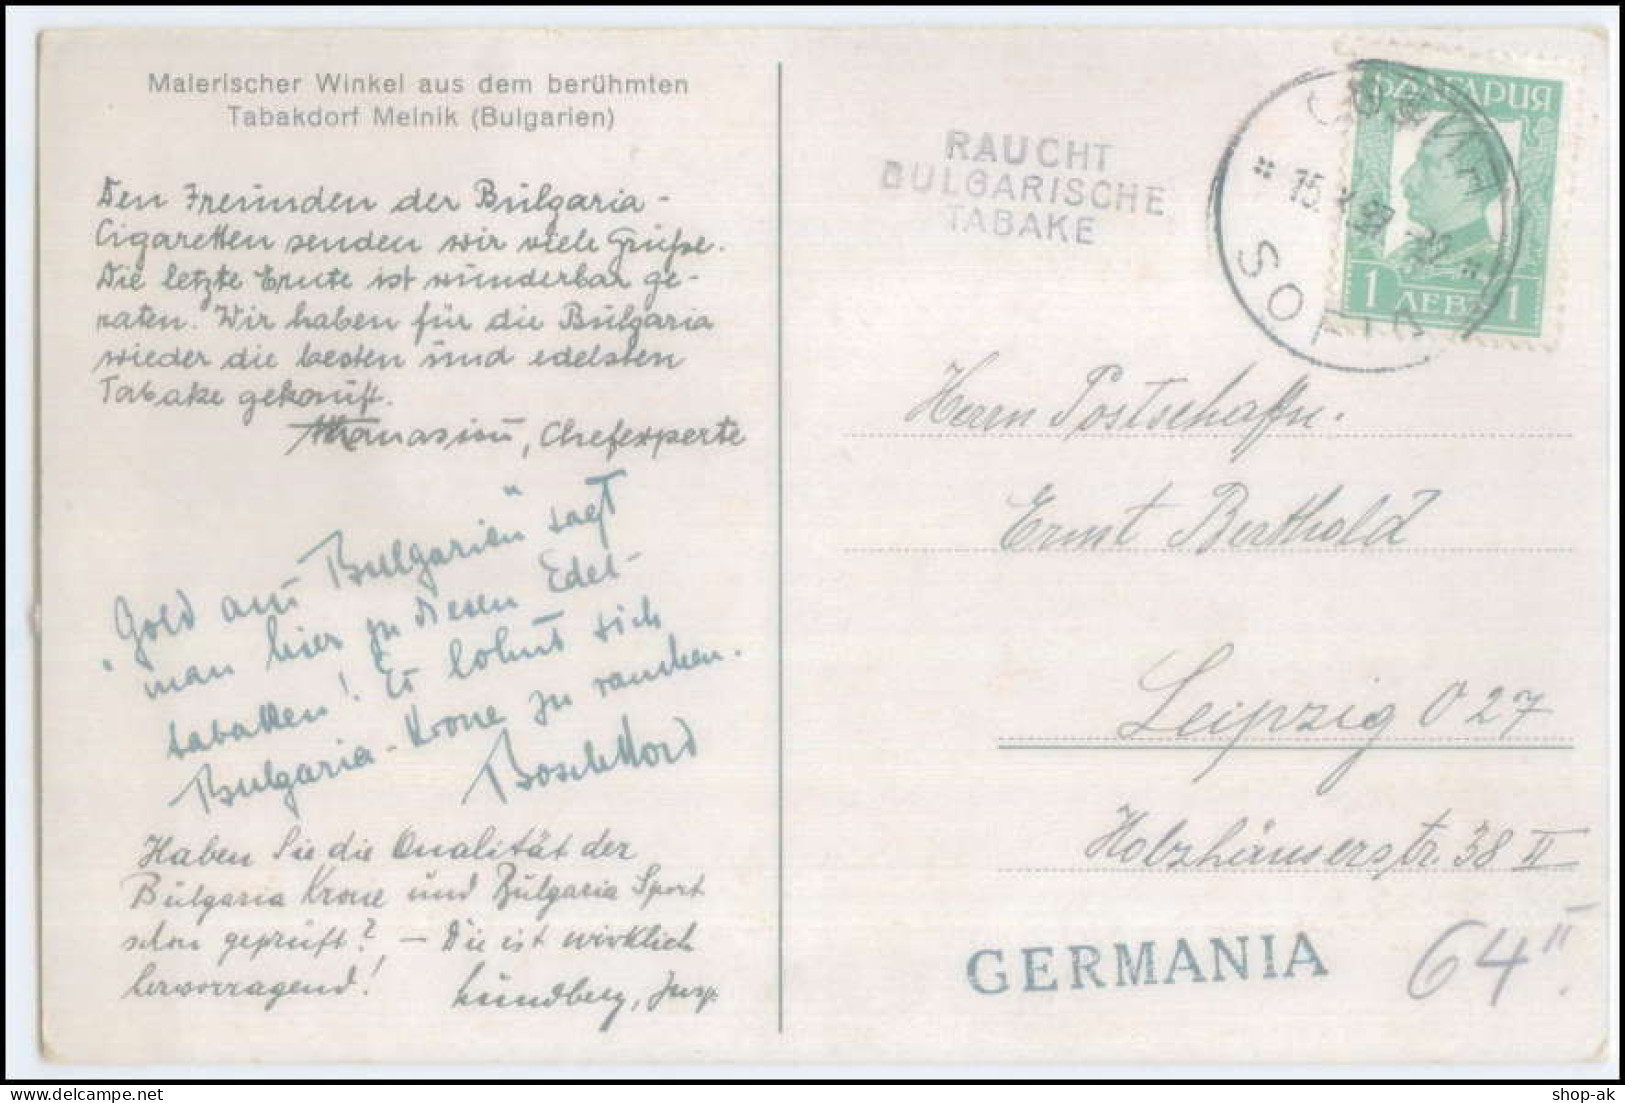 Malerischer Winkel aus dem berühmten
Tabakdorf Melnik (Bulgarien)
Den Freunden der Bulgaria-
Cigaretten senden wir viele Grüße.
Die letzte Ernte ist wunderbar ge-
raten. Wir haben für die Bulgaria
wieder die besten und edelsten
Tabake gekauft.
Athanasiou, Chefexperte
"Gold aus Bulgarien" sagt
man hier zu diesen Edel-
tabakken! Es lohnt sich
Bulgaria-Krone zu rauchen.
Haben Sie die Qualität der
Bulgaria Krone und Bulgaria Sport
schon geprüft? – Die ist wirklich
hervorragend!
Lundberg, Insp.
RAUCHT
BULGARISCHE
TABAKE
БЪЛГАРИЯ
SOFIA
1 ЛЕВЪ 1
Herrn Postschaffn.
Ernst Berthold
Leipzig O 27
Holzhäuserstr. 38 II
GERMANIA
64 II.
shop-ak